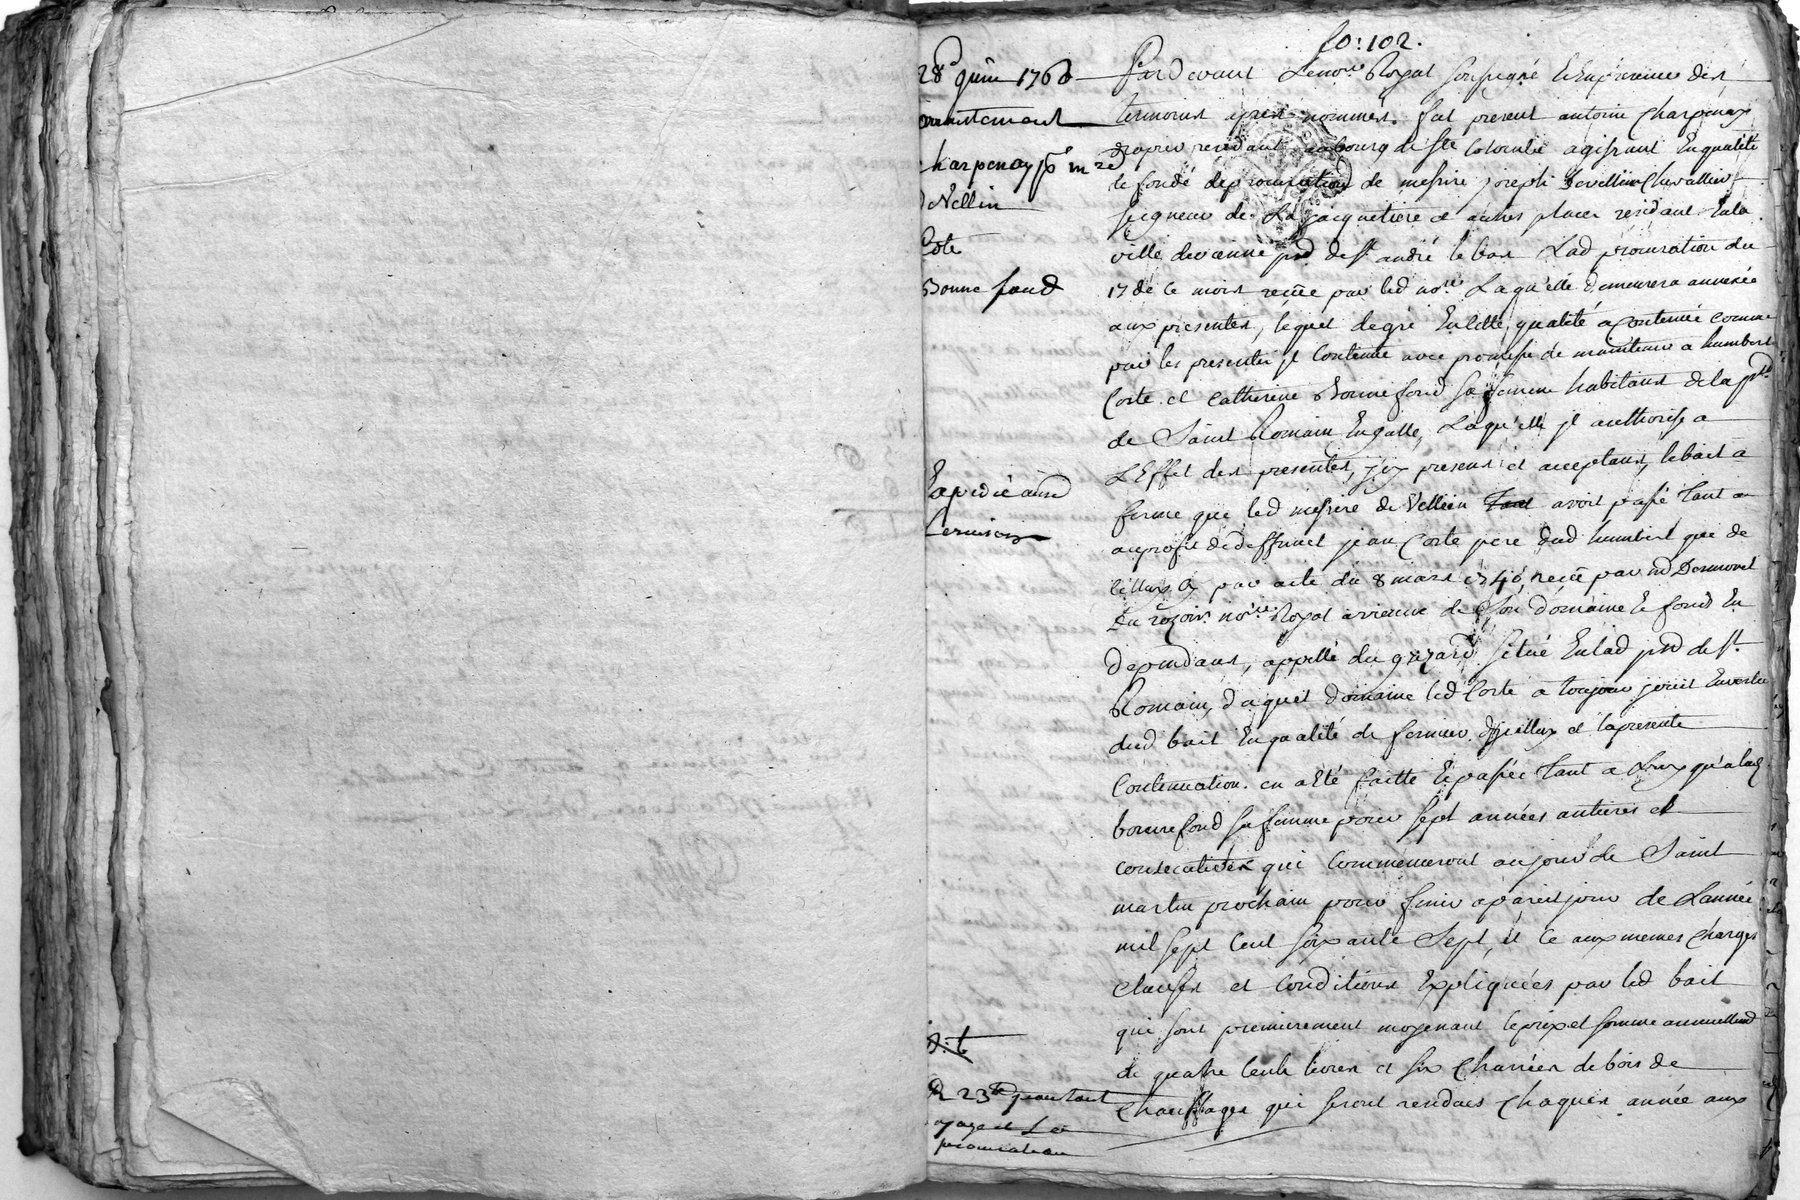 fo: 102.
28e juin 1760
Charpenay pr mre
de Vellin
Coste
Bonne fond
Expedié aud
fermier
Pardevant Lenore Royal soussigné Et En presence des
temoins apres nommés. fut present antoine Charpenay
drapier residant au bourg de Ste Colombe agissant En qualité
de fondé de procuration de messire joseph de vellein Chevallier
seigneur de La jacquetiere et autres places residant En la
ville de vienne prsse de st andré le bas Lad procuration du
17 de ce mois reçüe par led nore Laqu'elle demeurera annexée
aux presentes, lequel de gré En lditte qualité a Continüé comme
par les presentes jl Continüe avec promesse de maintenir a humbert
Coste et Catherine Bonnefond sa femme habitans de la prsse
de Saint Romain Engalle, Laqu'elle jl authorise a
L'Effet des presentes, jcy presens et acceptans, le bail a
ferme que led messire de Vellein avoit passé tant au
au profit de deffunct jean Coste pere dud humbert que de
celluy cy par acte du 8 mars 1740, reçü par me
nore Royal a vienne de Son domaine Et fonds En
dependans, appellé du situé En lad prsse de st
Romain, duquel domaine led Coste a toujours joüit En vertu
dud bail En qualité de fermier d'jcelluy et la presente
Continuation en a Eté faitte Et passée tant a Luy qu'a lad
bonnefond sa femme pour sept années entieres et
consecutives qui Commenceront au jour de Saint
martin prochain pour finir a pareil jour de Lannée
mil sept Cent soixante Sept, Et ce aux memes Charges
Clauses et Conditions Expliquées par led bail
qui sont premierement moyenant le prix et somme annuelle
de quatre Cents livres et six Charrées de bois de
Chauffages qui seront rendües Chaques année aux
procuration